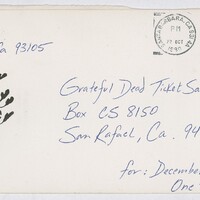 a 93105
SANTA BARBARA, CA
PM
OCT
1990
Grateful Dead Ticket Sa
Box CS 8150
San Rafael, Ca. 94
for: December
One